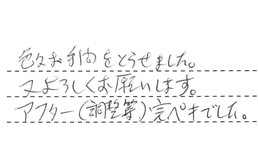 色々お手間をとらせました。
又よろしくお願いします。
アフター(調整等)完ペキでした。